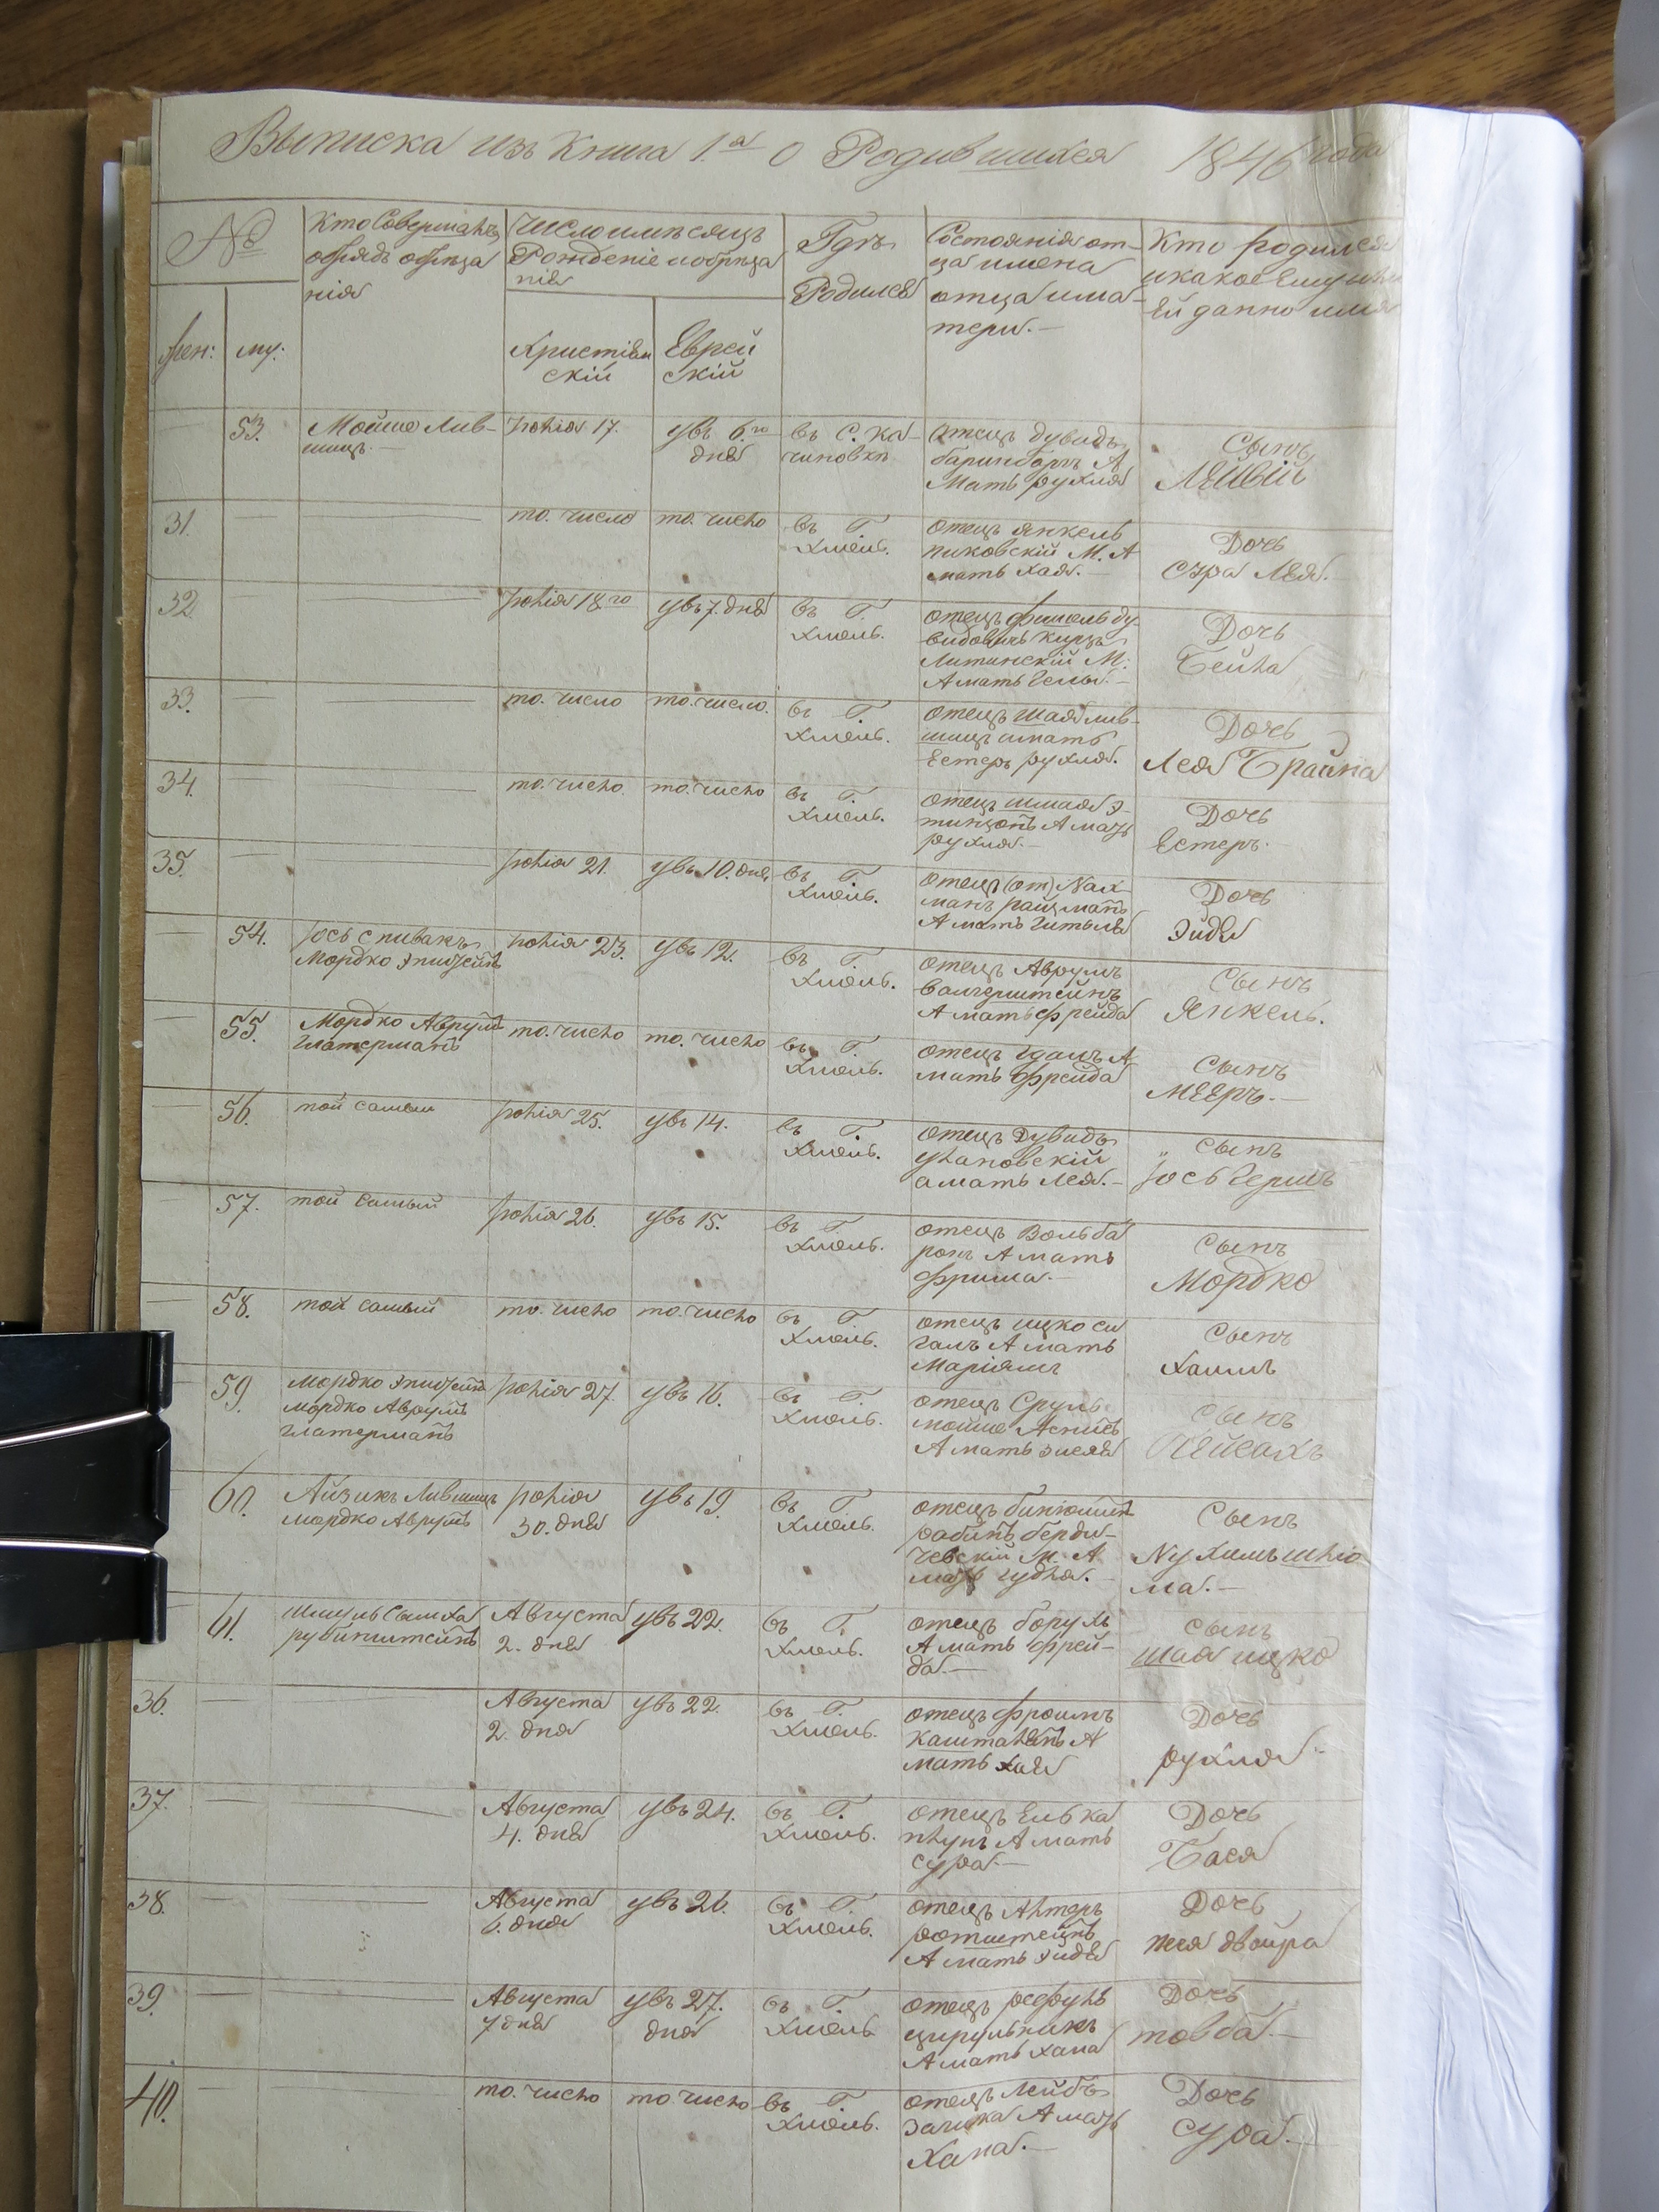 Выписка изъ Книга 1.а о Родившихся 1846 года
№
Кто Совершалъ
обрядъ обреза
нія
Число и месяцъ
Рожденіе и обреза
нія
Где
Родился
Состоянія от-
ца имена
отца и ма-
тери. —
Кто родился
и какое Ему или
Ей данно имя
жен:
му:
Христіян
скій
Еврей
скій
53.
Мойше Лив-
шицъ. —
Іюлія 17.
увъ 6.го
дня
въ С. Ка-
чиновки
отецъ дувидъ
А
Мать рухля
Сынъ
Лейвій
31.
то. число
то. число
въ Г.
Хмель.
отецъ янкель
пиковскій М. А
мать хая. —
Дочь
Сура Лея.
32
Іюлія 18го
увъ 7. дня
въ Г.
Хмель.
отецъ фишель ду-
видовичъ
Литинскій М:
А мать
Дочь
Бейла
33.
то. число
то. число.
въ Г.
Хмель.
отецъ шая лив-
шицъ и мать
Естеръ рухля.
Дочь
Лея Брайна
34.
то. число.
то. число
въ Г.
Хмель.
отецъ шмая э-
А мать
рухля. —
Дочь
Естеръ. —
35.
Іюлія 21.
увъ 10. дня
въ Г.
Хмель.
отецъ (от) Нах-
манъ райцманъ
А мать гительа
Дочь
Эйдя
54.
Іось спивакъ
Мордко
Іюлія 23.
увъ 12.
въ Г.
Хмель.
отецъ Аврумъ
А мать фрейда
Сынъ
Янкель.
55.
Мордко Аврумъ
глатерманъ
то. число
то. число
въ Г.
Хмель.
отецъ А
мать фрейда
Сынъ
Мееръ. —
56.
той самый
Іюлія 25.
увъ 14.
въ Г.
Хмель.
отецъ Дувидъ
улановскій
а мать Лея. —
сынъ
Іось гершъ
57.
той самый
Іюлія 26.
увъ 15.
въ Г.
Хмель.
отецъ Воль ба
ронъ А мать
фрима. —
Сынъ
Мордко
58.
той самый
то. число
то. число
въ Г.
Хмель.
отецъ ицко си
галъ А мать
Маріямъ
Сынъ
Хаимъ
59.
Мордко
Мордко Аврумъ
глатерманъ
Іюлія 27.
увъ 16.
въ Г.
Хмель.
отецъ Сруль
мойше
А мать
Сынъ
Пейсахъ
60.
Айзикъ Лившицъ
Мордко Аврумъ
Іюлія
30. дня
увъ 19.
въ Г.
Хмель.
отецъ бинюминъ
рабинъ берди-
чевскій М. А
мать гудля. —
Сынъ
Нухимъ шліо
ма. —
61.
шмуль Симха
рубинштейнъ
Августа
2. дня
увъ 22.
въ Г.
Хмель.
отецъ борухъ
А мать фрей-
да. —
сынъ
шая ицко
36.
Августа
2. дня
увъ 22.
въ Г.
Хмель.
отецъ фроимъ
каштаелнъ А
мать хая
Дочь
рухля —
37.
Августа
4. дня
увъ 24.
въ Г.
Хмель.
отецъ Ель ка
плунъ А мать
сура. —
Дочь
Бася
38.
Августа
6. дня
увъ 26.
въ Г.
Хмель.
отецъ Алтеръ
ротштейнъ
А мать эйдя
Дочь
песя двойра
39.
Августа
7 дня
увъ 27.
дня
въ Г.
Хмель
отецъ рефулъ
цирульникъ
А мать хана
Дочь
товба —
40.
то. число
то число
въ Г.
Хмель.
отецъ Лейбъ
А мать
Хана. —
Дочь
Сура. —